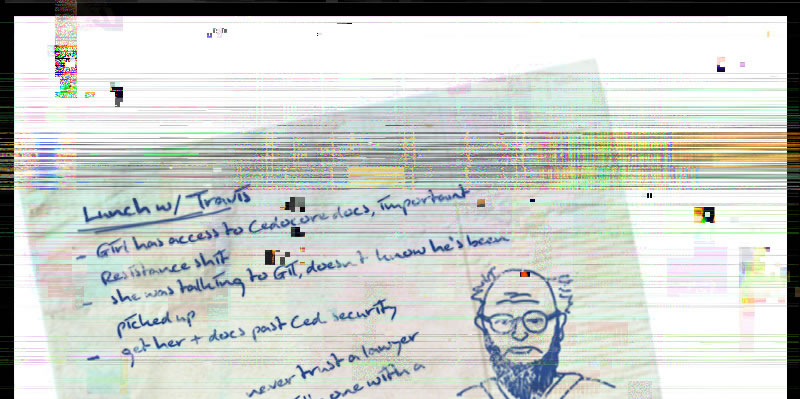 Lunch w/ Travis
- Girl has access to Cedocore docs, important
Resistance shit
- she was talking to Gil, doesn't know he's been
picked up
- get her + docs past Ced security
never trust a lawyer
one with a